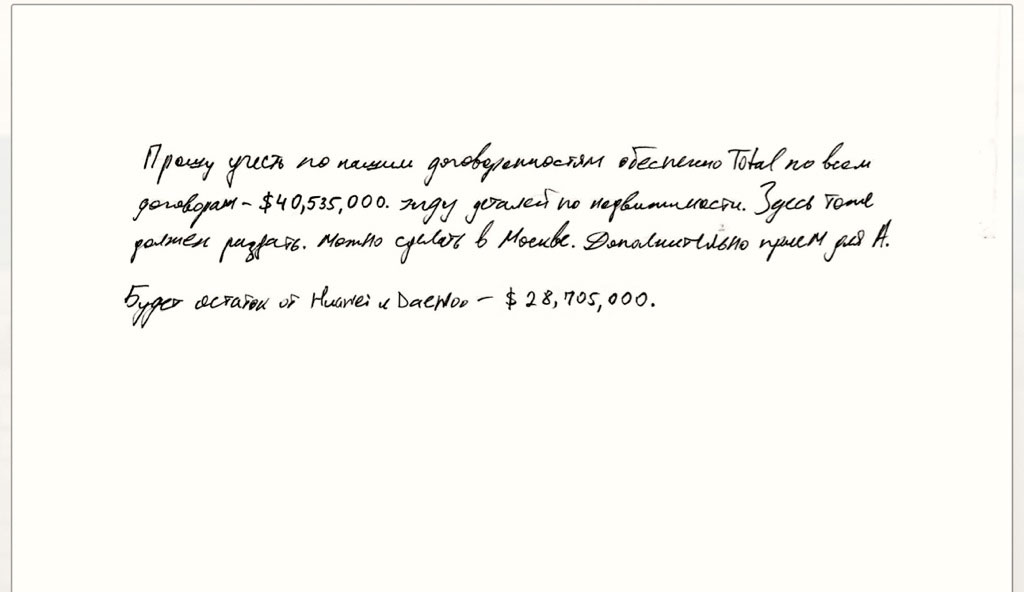 Прошу учесть по нашим договоренностям обеспечено Total по всем
договорам - $40,535,000. жду деталей по недвижимости. Здесь тоже
должен раздать. можно сделать в Москве. Дополнительно прием для А.
Будет остаток от Huawei и Daewoo - $28,705,000.